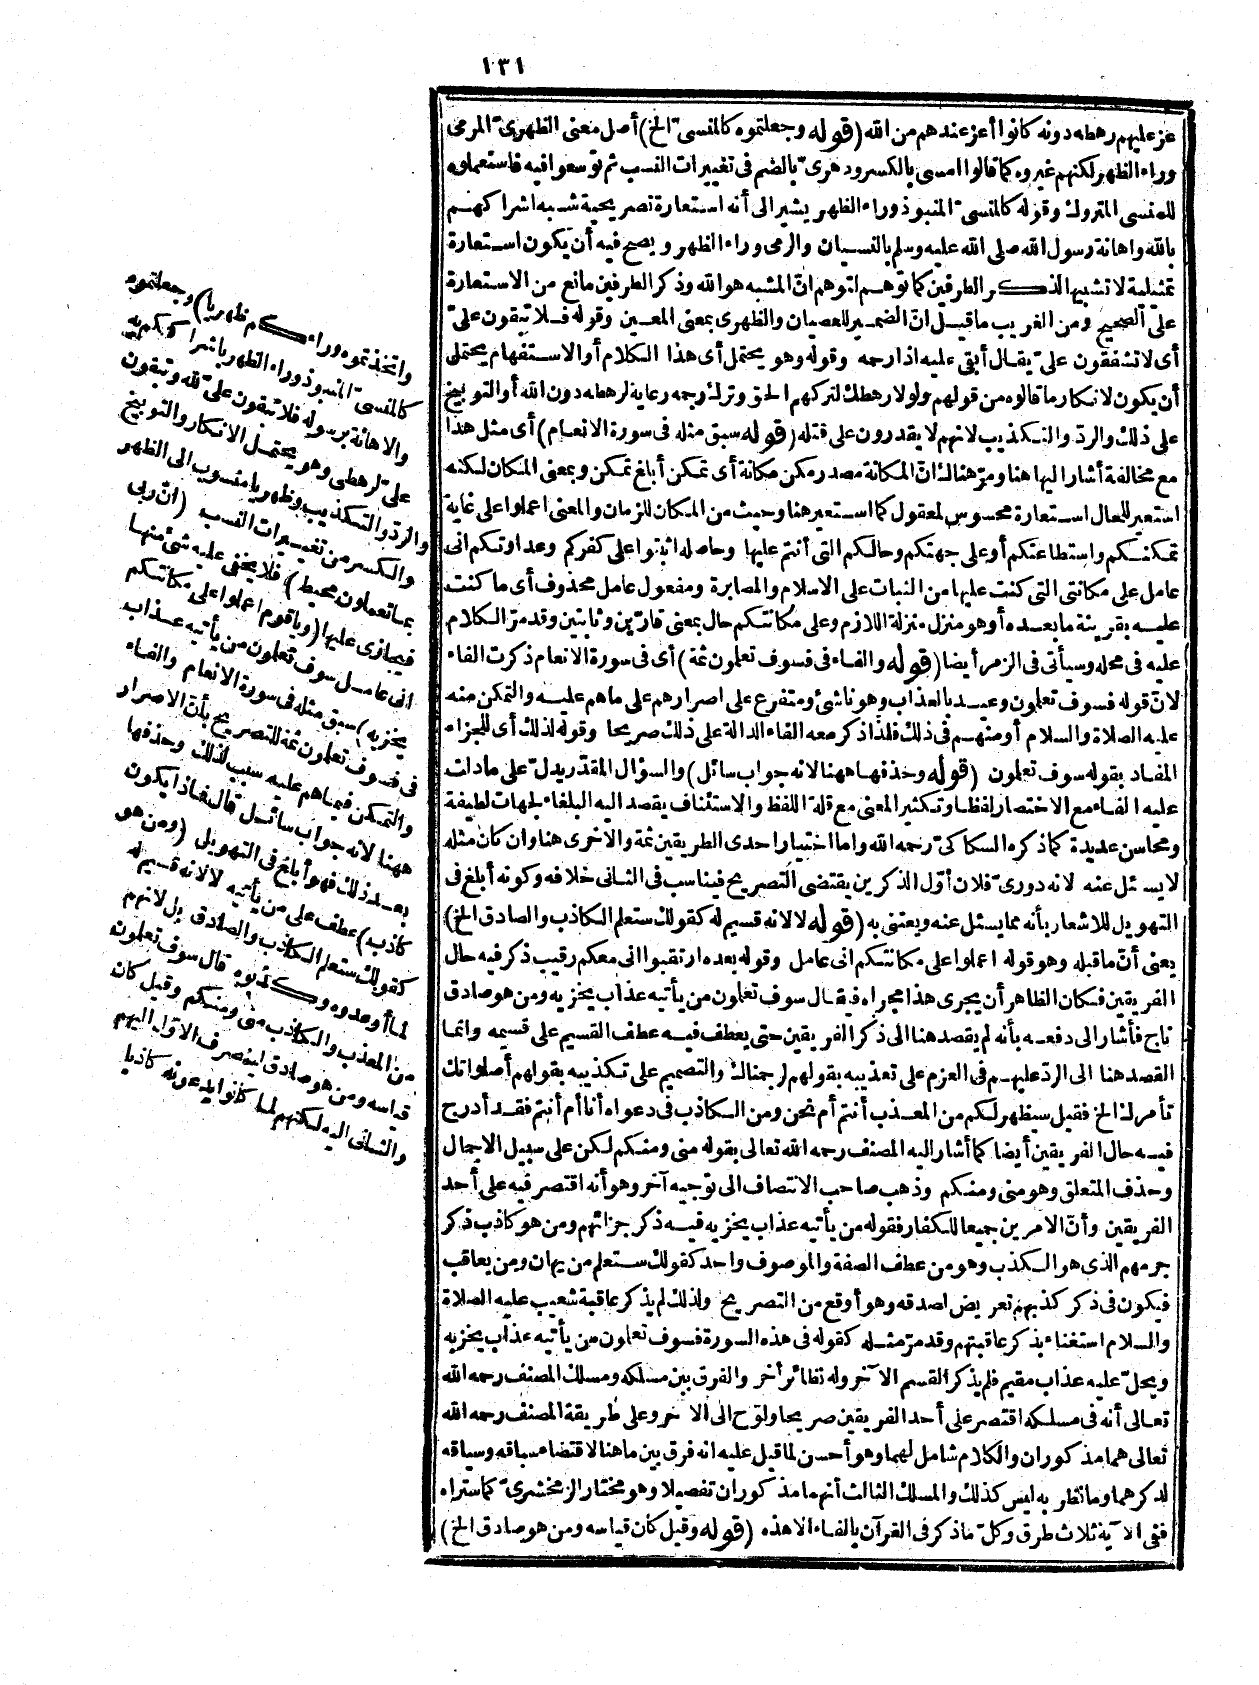 ١٣١
عز عليهم رهطه دونه كانوا أعز عندهم من الله (قوله وجعلتموه كالمنسىّ الخ) أصل معنى الظهرىّ المرمى
وراء الظهر لكنهم غيروه كما قالوا امسى بالكسر ودهرىّ بالضم فى تغييرات النسب ثم توسعوا فيه فاستعملوه
للمنسى المتروك وقوله كالمنسىّ المنبوذ وراء الظهر يشير الى أنه استعارة تصريحية شبه اشراكهم
بالله واهانة رسول الله صلى الله عليه وسلم بالنسيان والرمى وراء الظهر ويصح فيه أن يكون استعارة
تمثيلية لا تشبيها لذكر الطرفين كما توهم لتوهم انّ المشبه هو الله وذكر الطرفين مانع من الاستعارة
على الصحيح ومن الغريب ما قيل انّ الضمير للعصيان والظهرى بمعنى المعين وقوله فلا تبقون علىّ
أى لا تشفقون علىّ يقال أبقى عليه اذا رحمه وقوله وهو يحتمل أى هذا الكلام أو الاستفهام يحتمل
أن يكون لانكار ما قالوه من قولهم ولولا رهطك لتركهم الحق وترك رجمه رعاية لرهطه دون الله أو التوبيخ
على ذلك والردّ والتكذيب لانهم لا يقدرون على قتله (قوله سبق مثله فى سورة الانعام) أى مثل هذا
مع مخالفة أشار اليها هنا ومرّ هناك انّ المكانة مصدر مكن مكانة أى تمكن أبلغ تمكن وبمعنى المكان لكنه
استعير للحال استعارة محسوس لمعقول كما استعير هنا وحيث من المكان للزمان والمعنى اعملوا على غاية
تمكنكم واستطاعتكم أو على جهتكم وحالكم التى أنتم عليها وحاصله اثبتوا على كفركم وعداوتكم انى
عامل على مكانتى التى كنت عليها من الثبات على الاسلام والمصابرة ومفعول عامل محذوف أى ما كنت
عليه بقرينة ما بعده أو هو منزل منزلة اللازم وعلى مكانتكم حال بمعنى قارّين وثابتين وقد مرّ الكلام
عليه فى محله وسيأتى فى الزمر أيضا (قوله والفاء فى فسوف تعلمون ثمة) أى فى سورة الانعام ذكرت الفاء
لانّ قوله فسوف تعلمون وعيد بالعذاب وهو ناشئ ومتفرع على اصرارهم على ما هم عليه والتمكن منه
عليه الصلاة والسلام أو منهم فى ذلك فلذا ذكر معه الفاء الدالة على ذلك صريحا وقوله لذلك أى للجزاء
المفاد بقوله سوف تعلمون (قوله وحذفها ههنا لانه جواب سائل) والسؤال المقدّر يدل على ما دلت
عليه الفاء مع الاختصار لفظا وتكثير المعنى مع قلة اللفظ والاستئناف يقصد اليه البلغاء لجهات لطيفة
ومحاسن عديدة كما ذكره السكاكىّ رحمه الله واما اختيار احدى الطريقين ثمة والاخرى هنا وان كان مثله
لا يسئل عنه لانه دورىّ فلان أوّل الذكرين يقتضى التصريح فيناسب فى الثانى خلافه وكونه أبلغ فى
التهويل للاشعار بأنه مما يسئل عنه ويعتنى به (قوله لا لانه قسيم له كقولك ستعلم الكاذب والصادق الخ)
يعنى أنّ ما قبله وهو قوله اعملوا على مكانتكم انى عامل وقوله بعده ارتقبوا انى معكم رقيب ذكر فيه حال
الفريقين فكان الظاهر أن يجرى هذا مجراه فيقال سوف تعلمون من يأتيه عذاب يخزيه ومن هو صادق
ناج فأشار الى دفعه بأنه لم يقصد هنا الى ذكر الفريقين حتى يعطف فيه عطف القسيم على قسيمه وانما
القصد هنا الى الردّ عليهم فى العزم على تعذيبه بقولهم لرجمناك والتصميم على تكذيبه بقولهم أصلواتك
تأمرك الخ فقيل سيظهر لكم من المعذب أنتم أم نحن ومن الكاذب فى دعواه أنا أم أنتم فقد أدرج
فيه حال الفريقين أيضا كما أشار اليه المصنف رحمه الله تعالى بقوله منى ومنكم لكن على سبيل الاجمال
وحذف المتعلق وهو منى ومنكم وذهب صاحب الانتصاف الى توجيه آخر وهو أنه اقتصر فيه على أحد
الفريقين وأنّ الامرين جميعا للكفار فقوله من يأتيه عذاب يخزيه فيه ذكر جزائهم ومن هو كاذب ذكر
جرمهم الذى هو الكذب وهو من عطف الصفة والموصوف واحد كقولك ستعلم من يهان ومن يعاقب
فيكون فى ذكر كذبهم تعريض لصدقه وهو أوقع من التصريح ولذلك لم يذكر عاقبة شعيب عليه الصلاة
والسلام استغناء بذكر عاقبتهم وقد مرّ مثله كقوله فى هذه السورة فسوف تعلمون من يأتيه عذاب يخزيه
ويحلّ عليه عذاب مقيم فلم يذكر القسم الآخر وله نظائر أخر والفرق بين مسلكه ومسلك المصنف رحمه الله
تعالى أنه فى مسلكه اقتصر على أحد الفريقين صريحا ولوّح الى الآخر وعلى طريقة المصنف رحمه الله
تعالى هما مذكوران والكلام شامل لهما وهو أحسن لما قيل عليه انه فرق بين ما هنا لاقتضاء سباقه وسياقه
لذكرهما وما نظر به ليس كذلك والمسلك الثالث أنهما مذكوران تفصيلا وهو مختار الزمخشرىّ كما ستراه
ففى الآية ثلاث طرق وكلّ ما ذكر فى القرآن بالفاء الا هذه (قوله وقيل كان قياسه ومن هو صادق الخ)
واتخذتموه وراءكم ظهريا) وجعلتموه
كالمنسىّ المنبوذ وراء الظهر باشراككم به
والاهانة برسوله فلا تبقون علىّ لله وتبقون
علىّ لرهطى وهو يحتمل الانكار والتوبيخ
والردّ والتكذيب وظهريا منسوب الى الظهر
والكسر من تغييرات النسب (انّ ربى
بما تعملون محيط) فلا يخفى عليه شئ منها
فيجازى عليها (ويا قوم اعملوا على مكانتكم
انى عامل سوف تعلمون من يأتيه عذاب
يخزيه) سبق مثله فى سورة الانعام والفاء
فى فسوف تعلمون ثمة للتصريح بأنّ الاصرار
والتمكن فيما هم عليه سبب لذلك وحذفها
ههنا لانه جواب سائل قال فماذا يكون
بعد ذلك فهو أبلغ فى التهويل (ومن هو
كاذب) عطف على من يأتيه لا لانه قسيم له
كقولك ستعلم الكاذب والصادق بل لانهم
لما أوعدوه وكذبوه قال سوف تعلمون
من المعذب والكاذب منى ومنكم وقيل كان
قياسه ومن هو صادق لينصرف الاوّل اليهم
والثانى اليه لكنهم لما كانوا يدعونه كاذبا